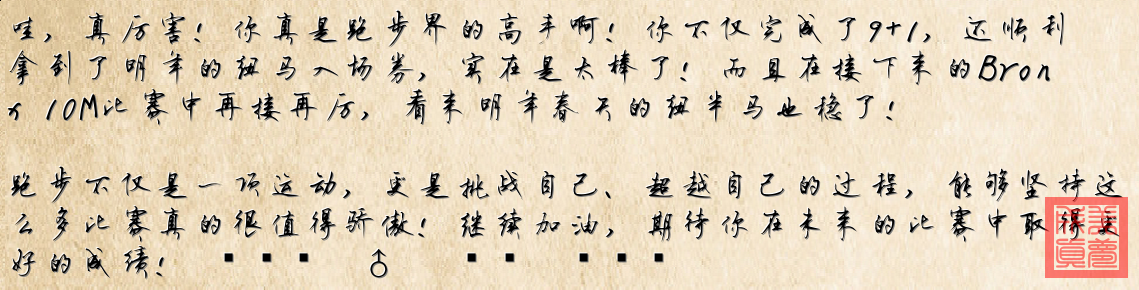 哇，真厉害！你真是跑步界的高手啊！你不仅完成了9+1，还顺利
拿到了明年的纽马入场券，实在是太棒了！而且在接下来的Bron
x 10M比赛中再接再厉，看来明年春天的纽半马也稳了！
跑步不仅是一项运动，更是挑战自己、超越自己的过程，能够坚持这
么多比赛真的很值得骄傲！继续加油，期待你在未来的比赛中取得更
好的成绩！ ▪ ▪ ▪ ♂ ▪ ▪ ▪ ▪ ▪